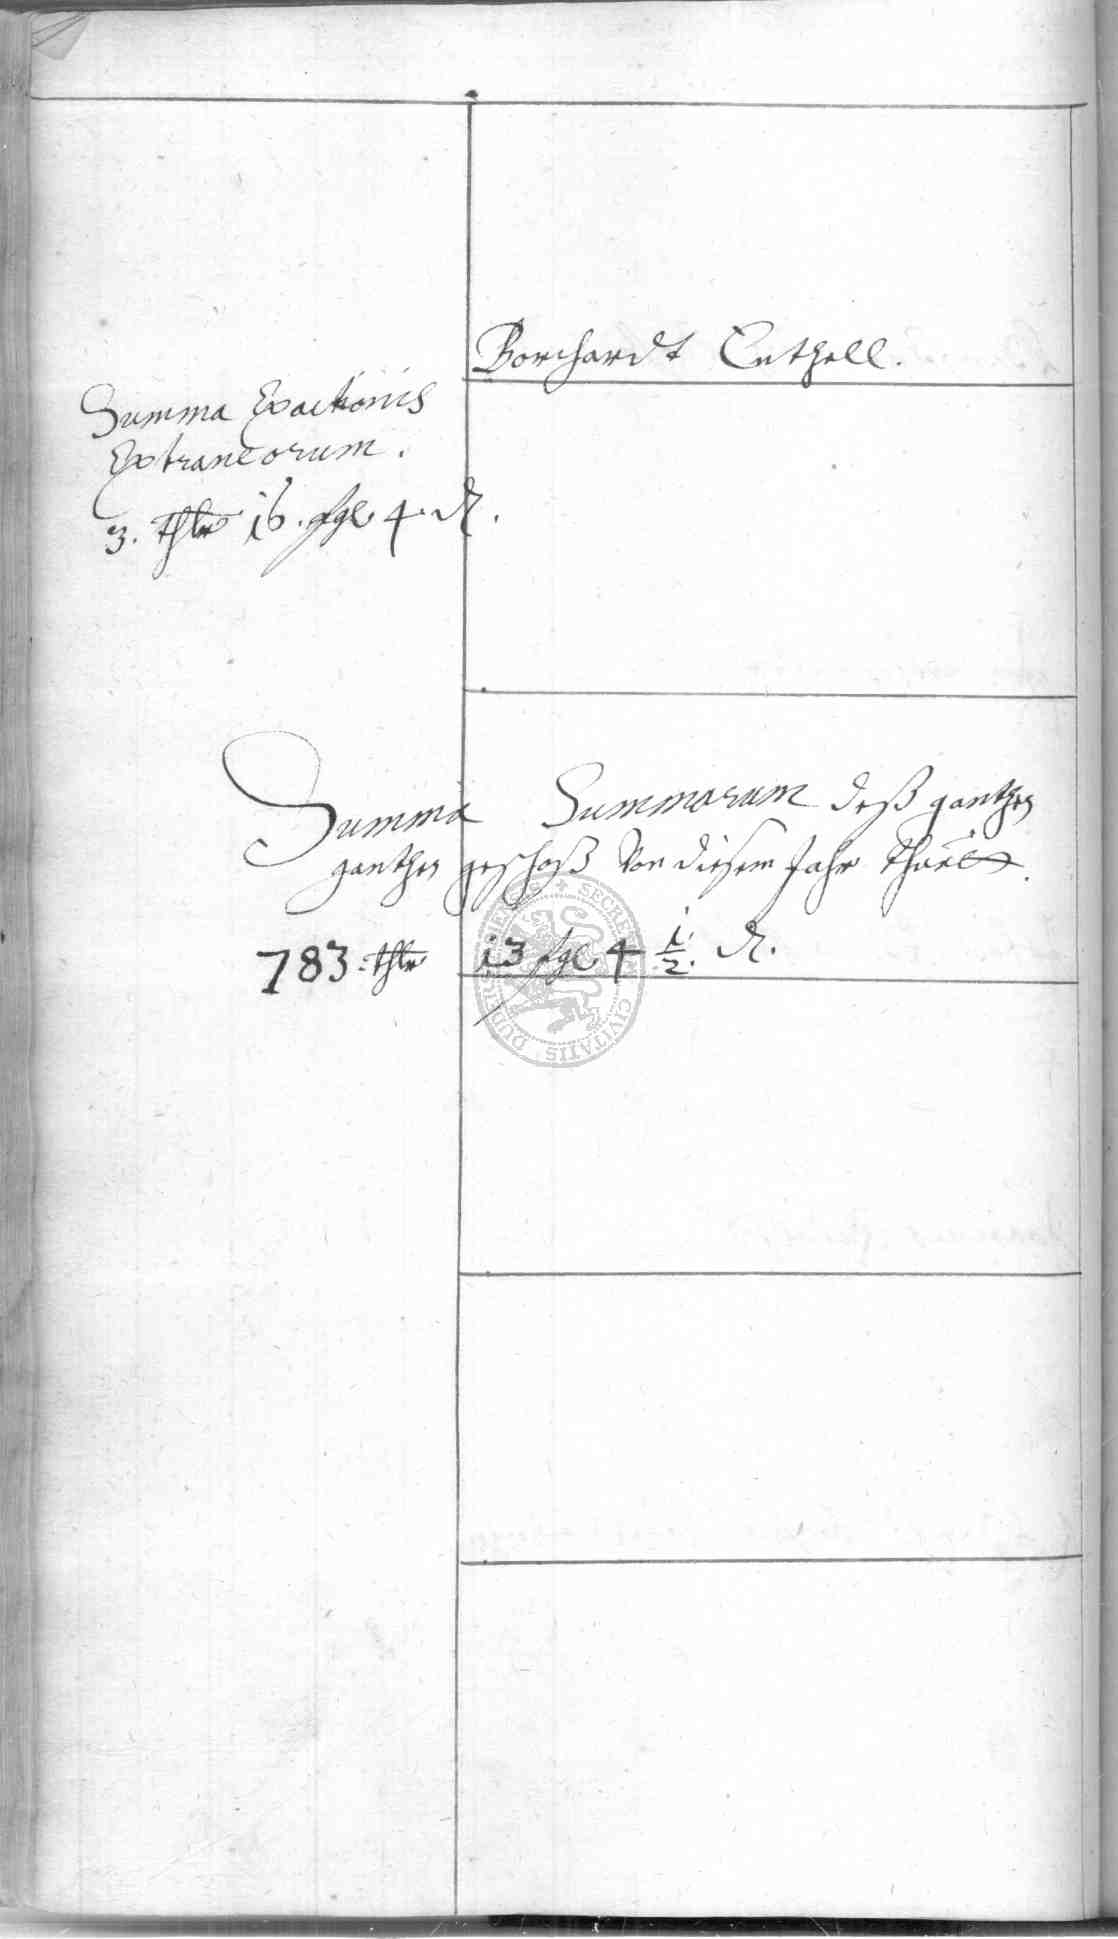 Borchardt Cuthell.
Summa Exactionis
Extraneorum.
3. thlr 16. sgl 4 d.
Summa Summarum deß gantzen
gantzen geschoß Von diesem Jahr thuet.
783 thlr 13 sgl 4 1/2 d.
SECRET CIVITATIS DUDERS